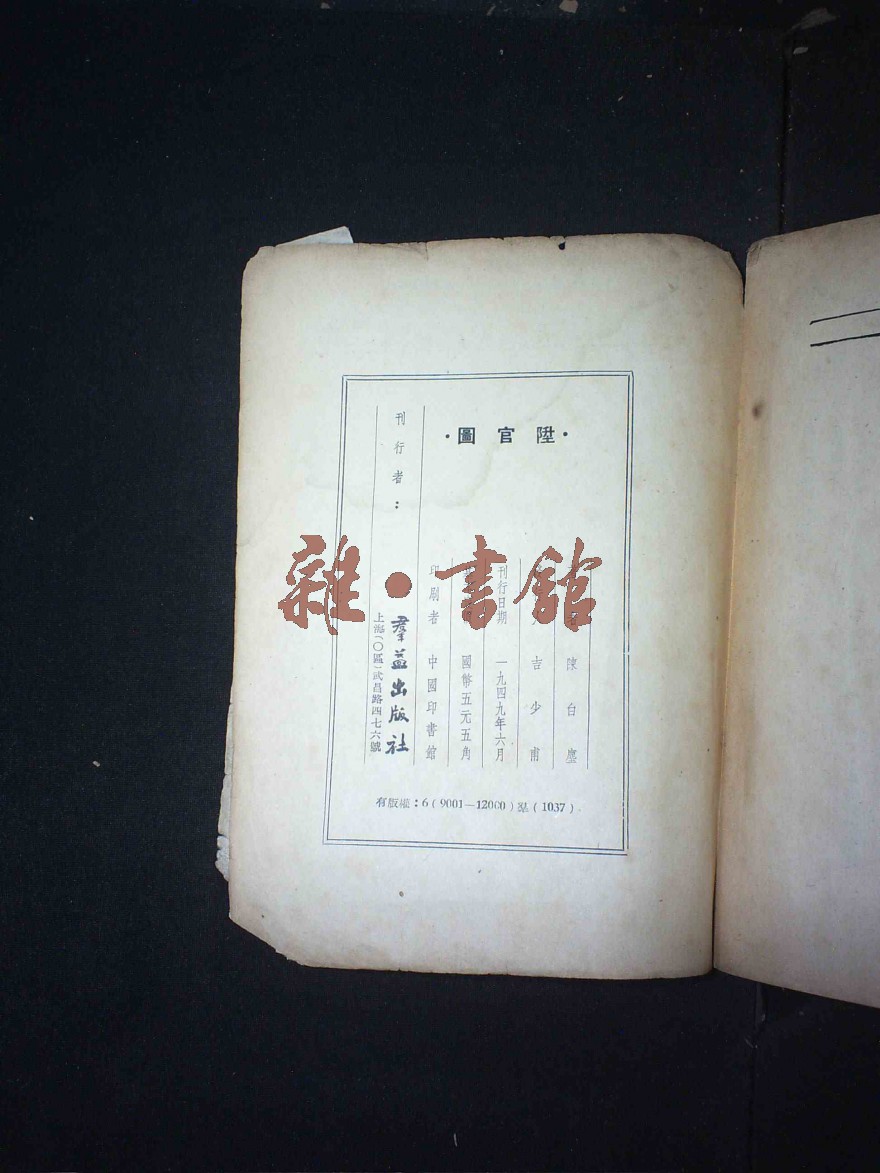 ·陞官圖·
陳白塵
吉少甫
刊行日期 一九四九年六月
國幣五元五角
印刷者 中國印書館
刊行者：
羣益出版社
上海(一〇區)武昌路四七六號
有版權：6(9001—12000)(1037)
雜·書館